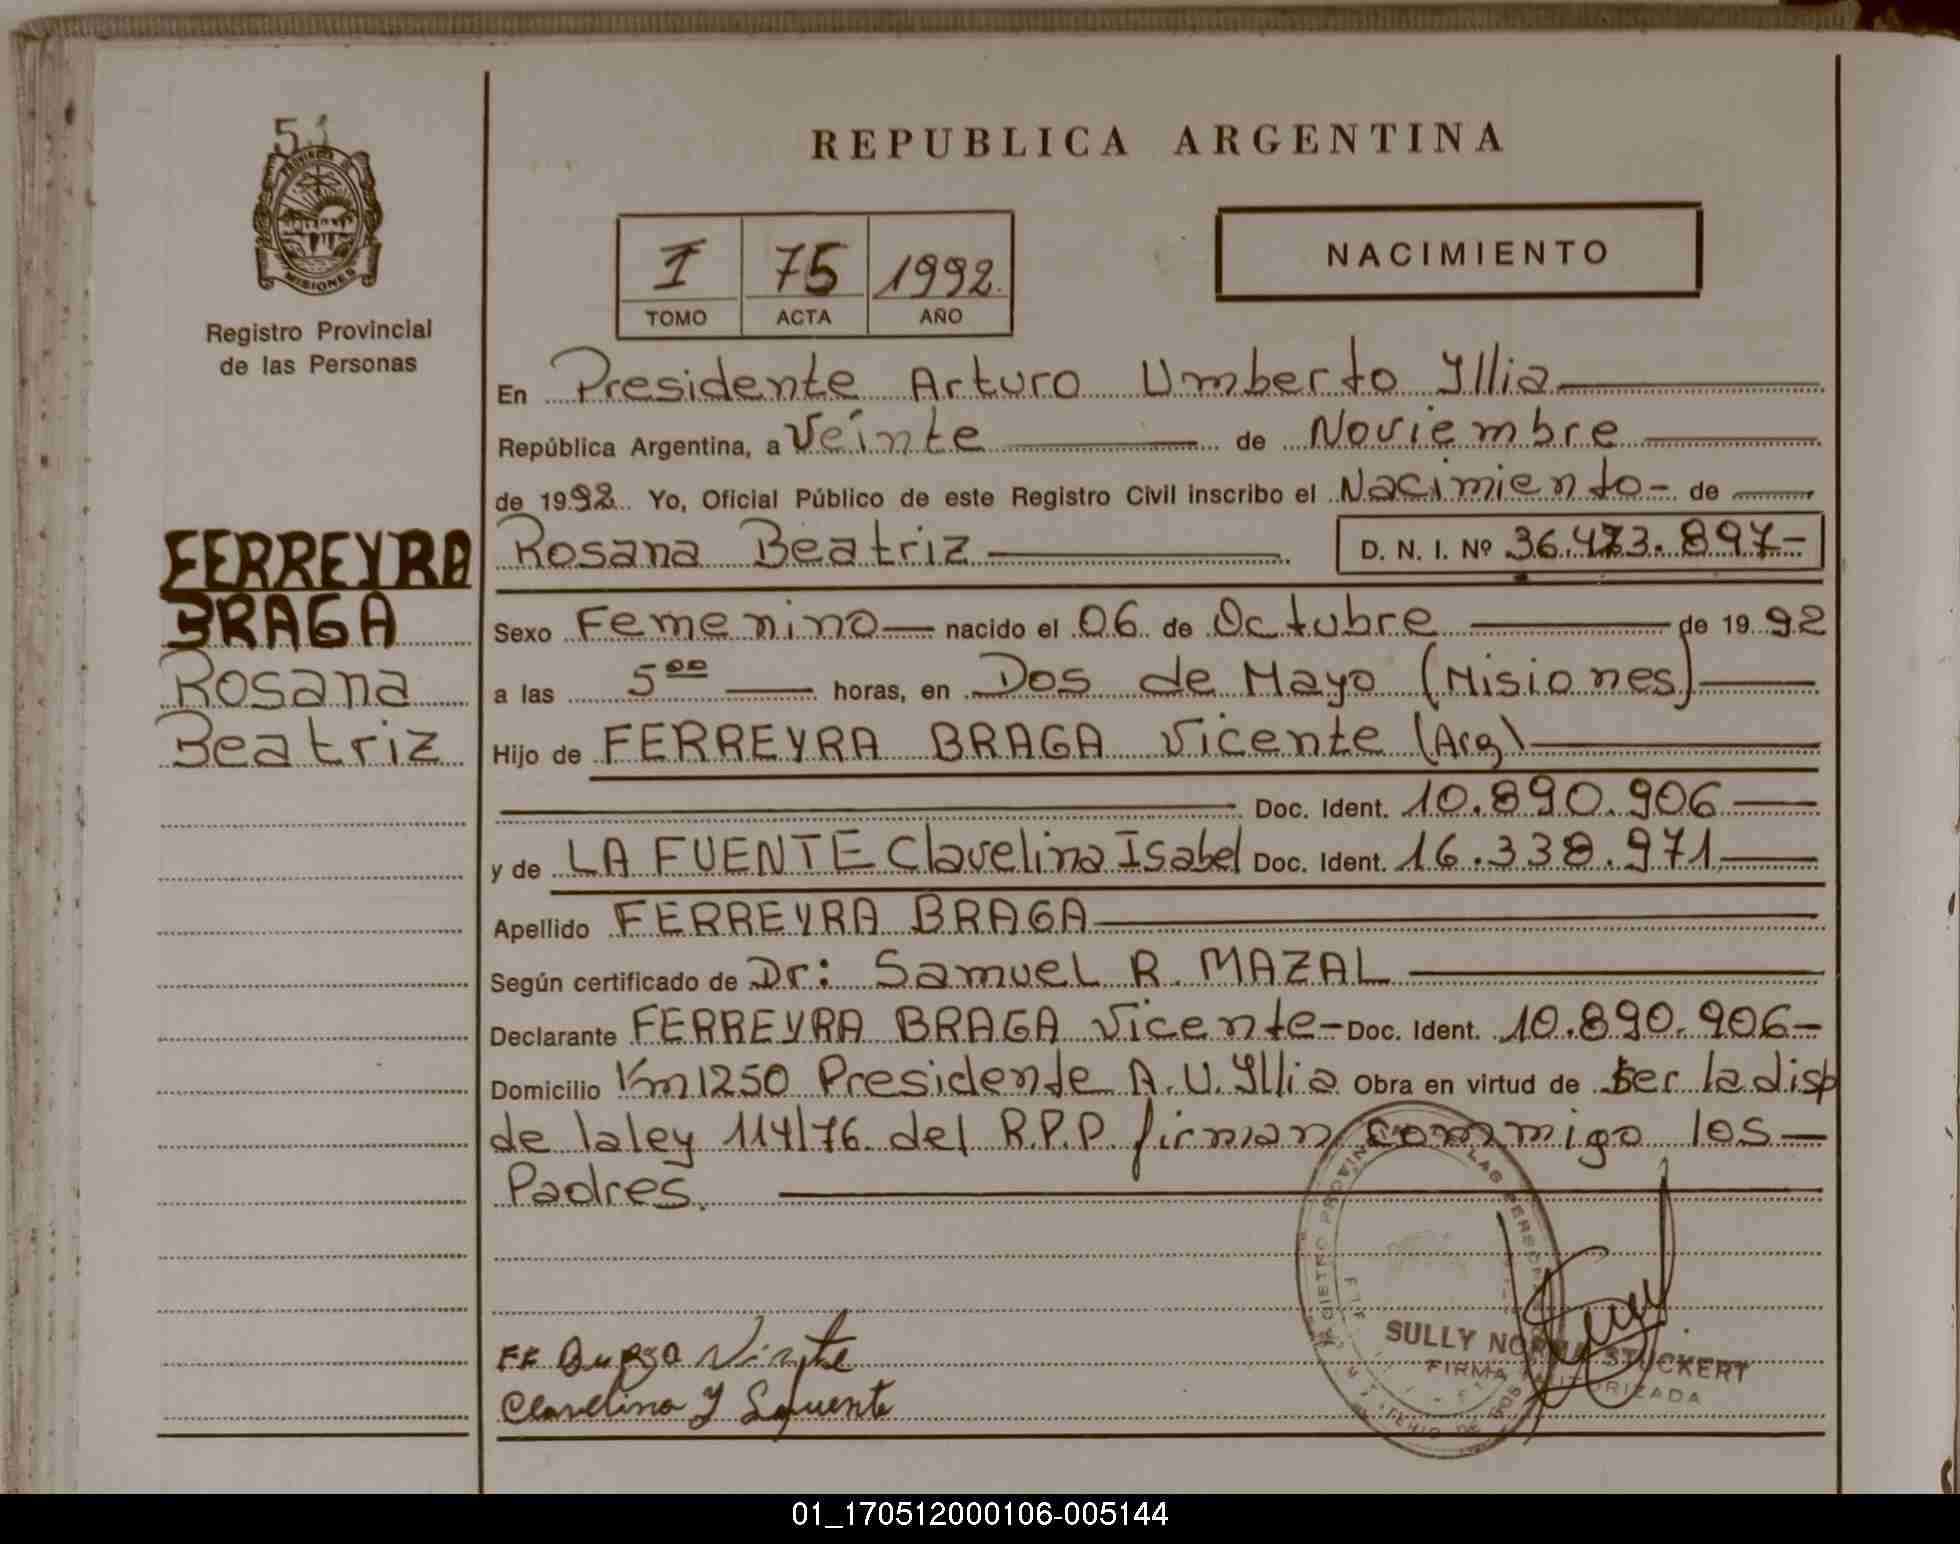 51
PROVINCIA DE
MISIONES
Registro Provincial
de las Personas
FERREYRA
BRAGA
Rosana
Beatriz
REPUBLICA ARGENTINA
I 75 1992
TOMO ACTA AÑO
NACIMIENTO
En Presidente Arturo Umberto Yllia
República Argentina, a Veinte de Noviembre
de 1992 Yo, Oficial Público de este Registro Civil inscribo el Nacimiento- de
Rosana Beatriz D. N. I. Nº 36.473.897-
Sexo Femenino nacido el 06 de Octubre de 1992
a las 5 00 horas, en Dos de Mayo (Misiones)
Hijo de FERREYRA BRAGA Vicente (Arg)
Doc. Ident. 10.890.906
y de LA FUENTE Clavelina Isabel Doc. Ident. 16.338.971
Apellido FERREYRA BRAGA
Según certificado de Dr: Samuel R. MAZAL
Declarante FERREYRA BRAGA Vicente- Doc. Ident. 10.890.906-
Domicilio Km 1250 Presidente A. U. Yllia Obra en virtud de ser la disp
de la ley 114/76 del R.P.P. firman commigo los
Padres.
Clavelina Y
SULLY NORMA STUCKERT
FIRMA AUTORIZADA
01_170512000106-005144